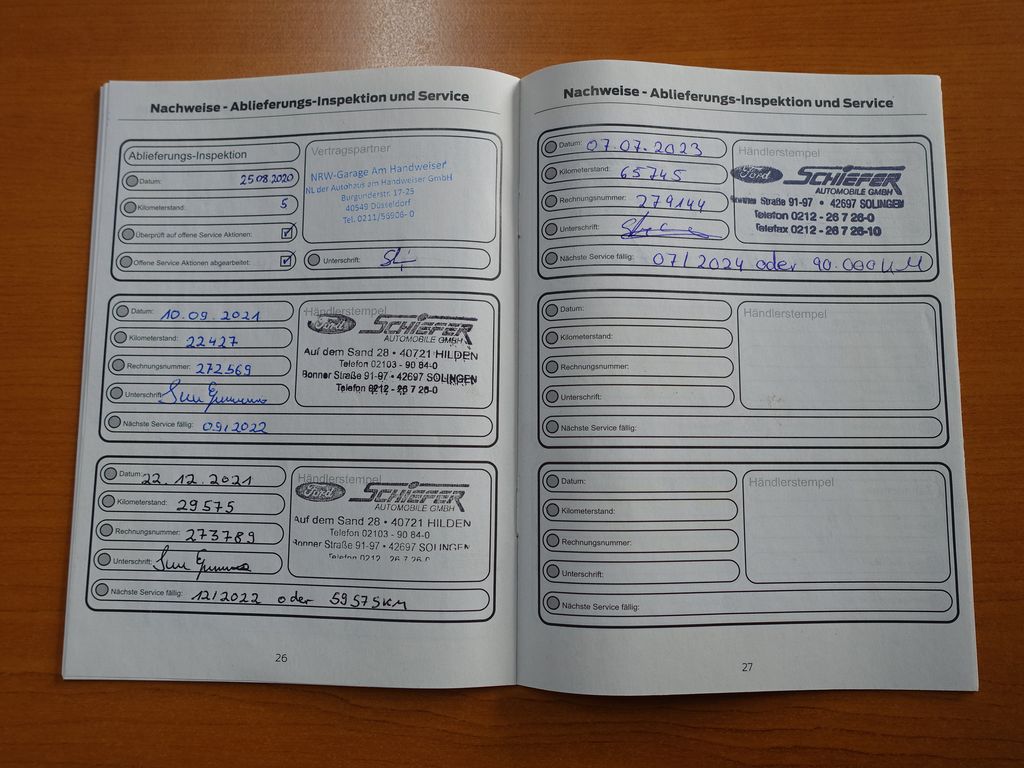 Nachweise - Ablieferungs-Inspektion und Service
Ablieferungs-Inspektion
Datum: 25 08 2020
Kilometerstand: 5
Überprüft auf offene Service Aktionen:
Offene Service Aktionen abgearbeitet:
Vertragspartner
NRW-Garage Am Handweiser
NL der Autohaus am Handweiser GmbH
Burgunderstr. 17-25
40549 Düsseldorf
Tel. 0211/56906-0
Unterschrift:
Datum: 10.09.2021
Kilometerstand: 22427
Rechnungsnummer: 272569
Unterschrift:
Nächste Service fällig: 09/2022
Händlerstempel
Ford SCHIEFER
AUTOMOBILE GMBH
Auf dem Sand 28 • 40721 HILDEN
Telefon 02103 - 90 84-0
Bonner Straße 91-97 • 42697 SOLINGEN
Telefon 0212 - 26 7 26-0
Datum: 22.12.2021
Kilometerstand: 29575
Rechnungsnummer: 273789
Unterschrift:
Nächste Service fällig: 12/2022 oder 59575KM
Händlerstempel
Ford SCHIEFER
AUTOMOBILE GMBH
Auf dem Sand 28 • 40721 HILDEN
Telefon 02103 - 90 84-0
Bonner Straße 91-97 • 42697 SOLINGEN
Telefon 0212 - 26 7 26-0
26
Nachweise - Ablieferungs-Inspektion und Service
Datum: 07.07.2023
Kilometerstand: 65745
Rechnungsnummer: 279144
Unterschrift:
Nächste Service fällig: 07/2024 oder 90.000KM
Händlerstempel
Ford SCHIEFER
AUTOMOBILE GMBH
Bonner Straße 91-97 • 42697 SOLINGEN
Telefon 0212 - 26 7 26-0
Telefax 0212 - 26 7 26-10
Datum:
Kilometerstand:
Rechnungsnummer:
Unterschrift:
Nächste Service fällig:
Händlerstempel
Datum:
Kilometerstand:
Rechnungsnummer:
Unterschrift:
Nächste Service fällig:
Händlerstempel
27